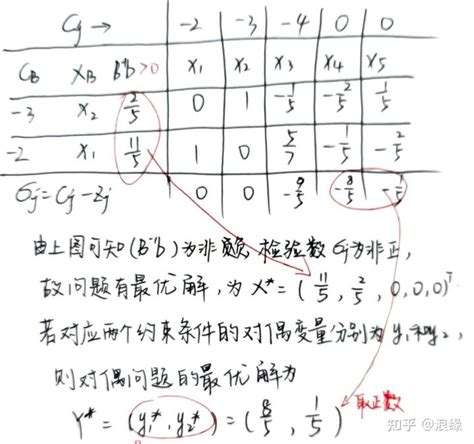 Cj → -2 -3 -4 0 0
CB XB B⁻¹b>0 x1 x2 x3 x4 x5
-3 x2 2/5 0 1 -1/5 -2/5 1/5
-2 x1 11/5 1 0 5/7 -1/5 -2/5
σj=Cj-Zj 0 0 -9/5 -8/5 -1/5
由上图可知(B⁻¹b)为非负,检验数σj为非正,
故问题有最优解,为X*=(11/5,2/5,0,0,0)ᵀ
若对应两个约束条件的对偶变量分别为y1和y2,
则对偶问题的最优解为
取正数
Y*=(y1*,y2*)=(8/5,1/5)
知乎 @浪缘